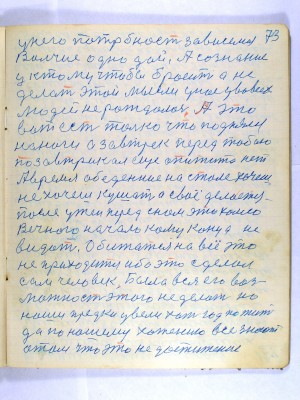 у него потребност зависемая 73
Величие одно дай, А сознание
у к тому чтобы бросить а не
делат этой мысли у нас у всех
людей не рождалось, А это
вот ест толко что поднялся
на ноги а завтрек перед тобою
позавтракал еще аппетита нет
А время обеденние на столе хочеш
не хочеш кушат, а своё делается
после ужен перед сном эти колесо
Вечного начало кому конца не
видат. Обижатся на всё это
не приходится ибо это сделал
сам человек, Была вся его воз-
можност этого не делат но
наши предки увели хот год пожит
да по нашему хотению все знают
о том что это не достижение